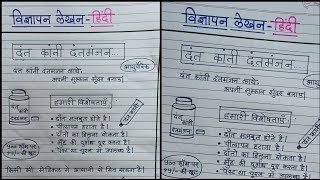 विज्ञापन लेखन-हिंदी
दंत कांती दंतमंजन..
आयुर्वेदिक
दंत कांती दंतमंजन लाएँ,
अपनी मुस्कान सुंदर बनाएँ।
हमारी विशेषताएँ
दाँत मजबूत होते है।
पीलापन हटाता है।
दाँतों का हिलना रोकता है।
मुँह की दुर्गंध दूर करता है।
पेस्ट या चूरन में उपलब्ध है।
दंत
कांती
दंतमंजन
किसी भी मेडिकल में आसानी से मिल सकता है।
विज्ञापन लेखन-हिंदी
दंत कांती दंतमंजन..
आयुर्वेदिक
दंत कांती दंतमंजन लाएँ,
अपनी मुस्कान सुंदर बनाएँ।
हमारी विशेषताएँ
दाँत मजबूत होते है।
पीलापन हटाता है।
दाँतों का हिलना रोकता है।
मुँह की दुर्गंध दूर करता है।
पेस्ट या चूरन में उपलब्ध है।